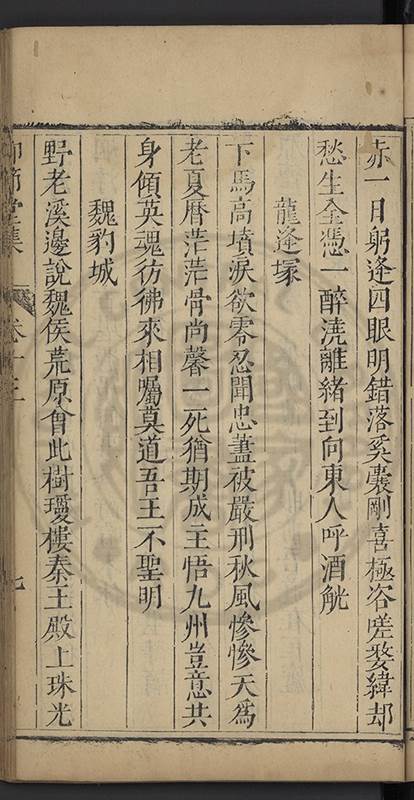 赤一日躬逢四眼明錯落奚囊剛喜極咨嗟婺緯却
愁生全憑一醉澆離緒到向東人呼酒觥
龍逢塚
下馬高墳淚欲零忍聞忠藎被嚴刑秋風慘慘天爲
老夏曆茫茫骨尚馨一死猶期成主悟九州豈意共
身傾英魂彷彿來相囑莫道吾王不聖明
魏豹城
野老溪邊說魏侯荒原曾此樹瓊樓秦王殿上珠光
節堂集 卷十三 七